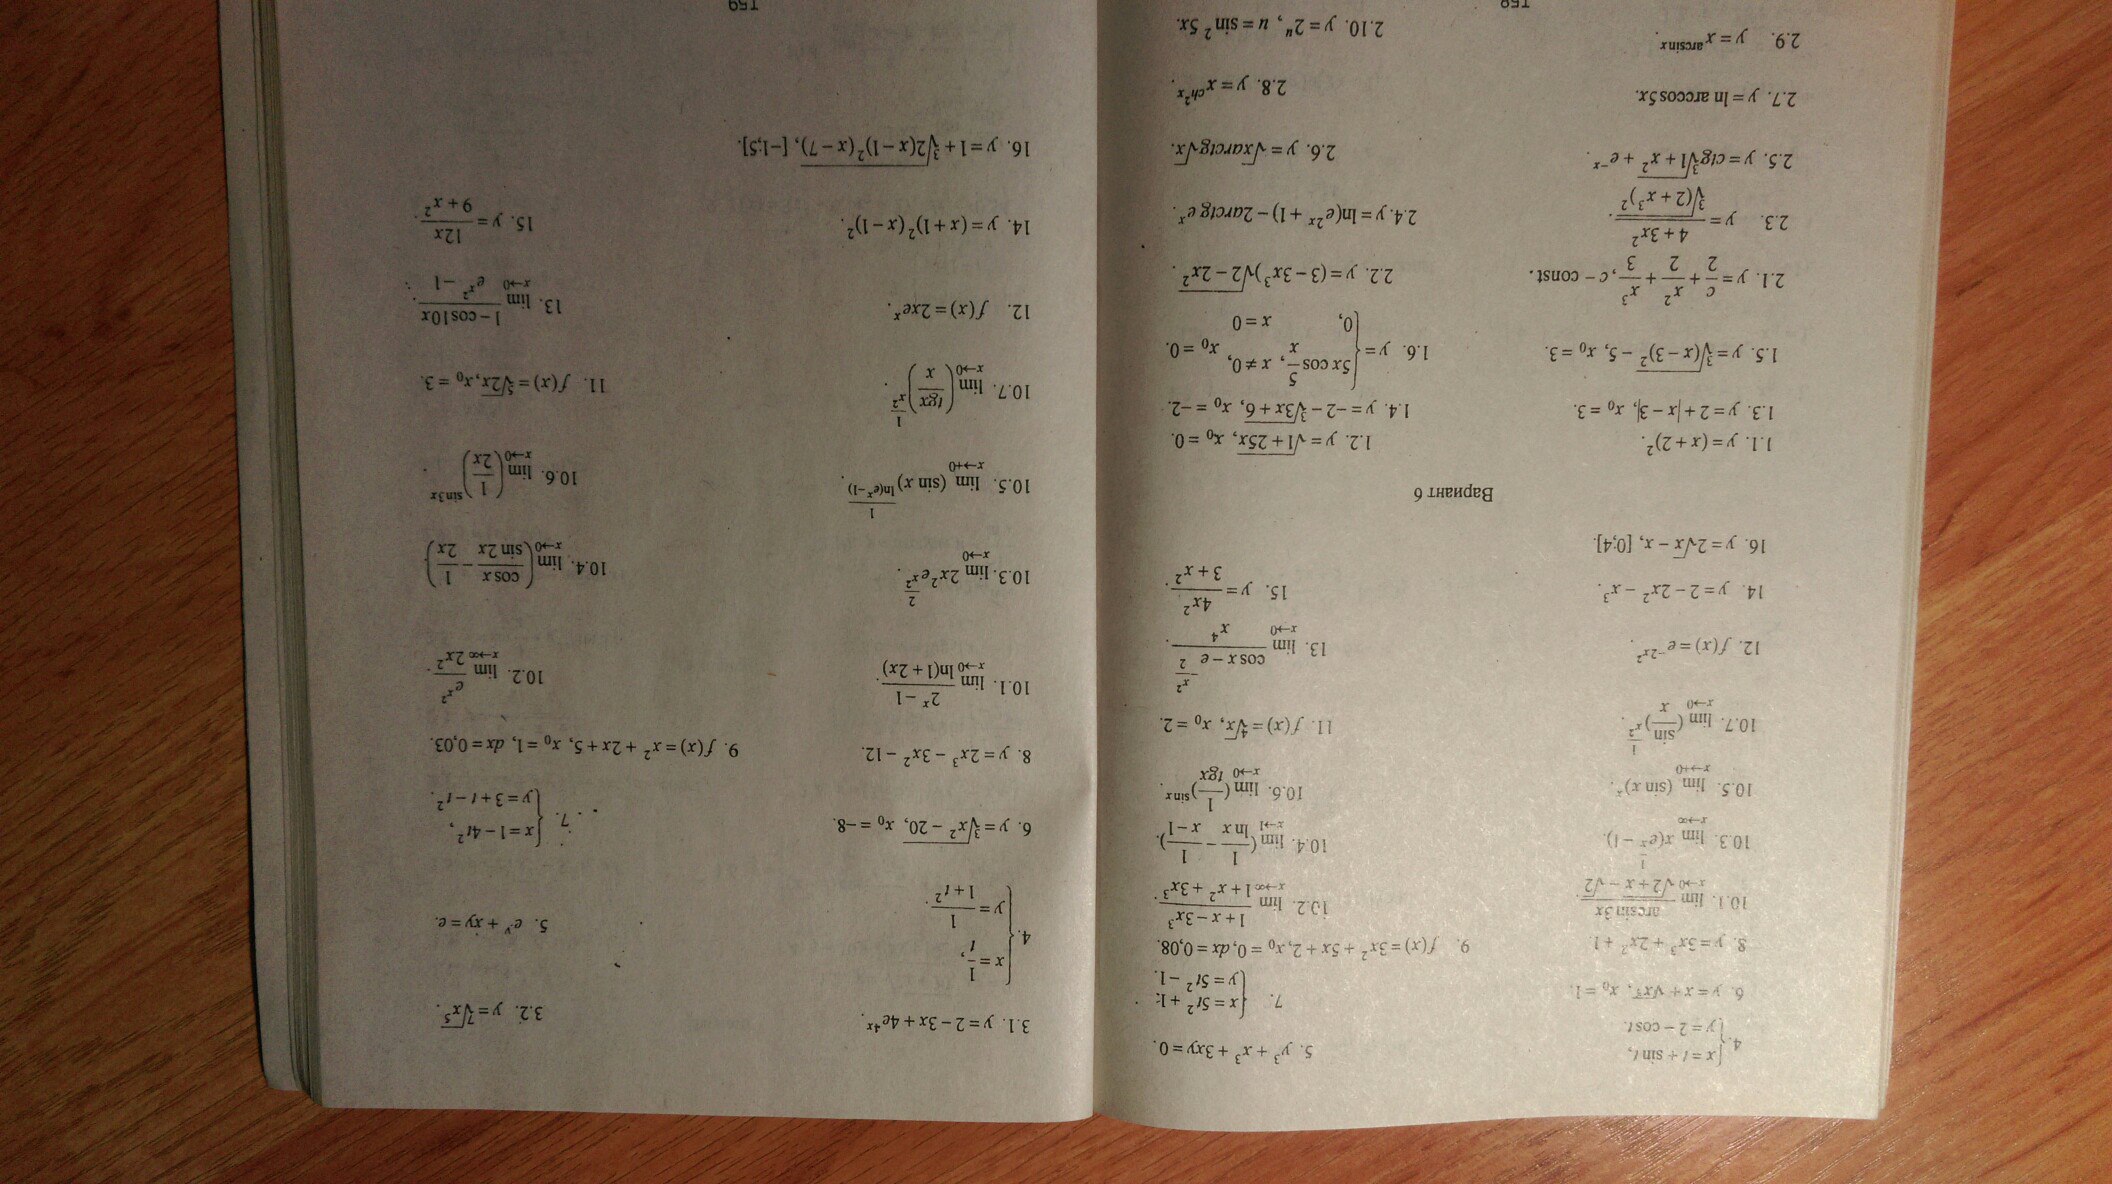 4. {x = t + sin t,
y = 2 − cos t.
5. y³ + x³ + 3xy = 0.
6. y = x + √x³, x₀ = 1.
7. {x = 5t² + 1;
y = 5t² − 1.
8. y = 3x³ + 2x² + 1.
9. f(x) = 3x² + 5x + 2, x₀ = 0, dx = 0,08.
10.1. lim x→0 (arcsin 3x)/(√2+x − √2).
10.2. lim x→∞ (1 + x − 3x³)/(1 + x² + 3x³).
10.3. lim x→∞ x(e^(1/x) − 1).
10.4. lim x→1 (1/ln x − 1/(x − 1)).
10.5. lim x→+0 (sin x)^x.
10.6. lim x→0 (1/tgx)^(sin x).
10.7. lim x→0 (sin/x)^(1/x²).
11. f(x) = ⁴√x, x₀ = 2.
12. f(x) = e^(−2x²).
13. lim x→0 (cos x − e^(−x²/2))/x⁴.
14. y = 2 − 2x² − x³.
15. y = 4x²/(3 + x²).
16. y = 2√x − x, [0;4].
Вариант 6
1.1. y = (x + 2)².
1.2. y = √(1 + 25x), x₀ = 0.
1.3. y = 2 + |x − 3|, x₀ = 3.
1.4. y = −2 − ³√(3x + 6), x₀ = −2.
1.5. y = ³√((x − 3)²) − 5, x₀ = 3.
1.6. y = {5x cos 5/x, x ≠ 0,
0, x = 0
x₀ = 0.
2.1. y = c/2 + x²/2 + x³/3, c − const.
2.2. y = (3 − 3x³)√(2 − 2x²).
2.3. y = (4 + 3x²)/³√((2 + x³)²).
2.4. y = ln(e^(2x) + 1) − 2arctg e^x.
2.5. y = ctg ³√(1 + x²) + e^(−x).
2.6. y = √x arctg√x.
2.7. y = ln arccos 5x.
2.8. y = x^(ch²x).
2.9. y = x^(arcsin x).
2.10. y = 2^u, u = sin² 5x.
158
3.1. y = 2 − 3x + 4e^(4x).
3.2. y = ⁷√x⁵.
4. {x = 1/t,
y = 1/(1 + t²).
5. e^y + xy = e.
6. y = ³√(x² − 20), x₀ = −8.
7. {x = 1 − 4t²,
y = 3 + t − t².
8. y = 2x³ − 3x² − 12.
9. f(x) = x² + 2x + 5, x₀ = 1, dx = 0,03.
10.1. lim x→0 (2^x − 1)/ln(1 + 2x).
10.2. lim x→∞ e^(x²)/2x².
10.3. lim x→0 2x²e^(2/x²).
10.4. lim x→0 (cos x/sin 2x − 1/2x).
10.5. lim x→+0 (sin x)^(1/ln(e^x−1)).
10.6. lim x→0 (1/2x)^(sin 3x).
10.7. lim x→0 (tgx/x)^(1/x²).
11. f(x) = ⁵√2x, x₀ = 3.
12. f(x) = 2xe^x.
13. lim x→0 (1 − cos10x)/(e^(x²) − 1).
14. y = (x + 1)²(x − 1)².
15. y = 12x/(9 + x²).
16. y = 1 + ³√(2(x − 1)²(x − 7)), [−1;5].
159